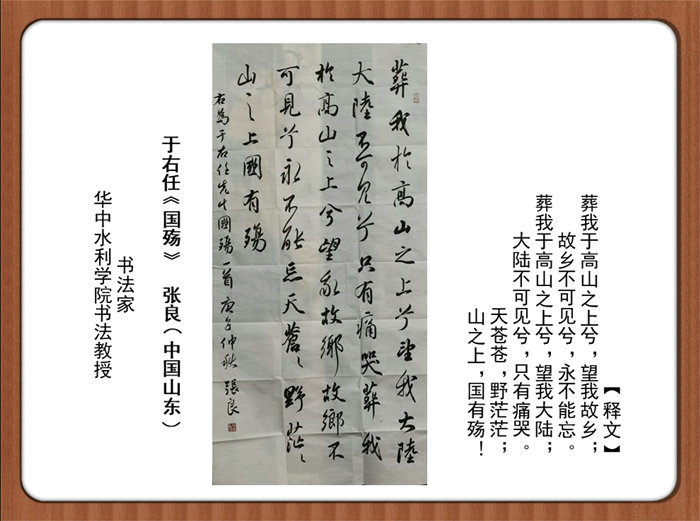 【释文】
葬我于高山之上兮，望我故乡；
故乡不可见兮，永不能忘。
葬我于高山之上兮，望我大陆；
大陆不可见兮，只有痛哭。
天苍苍，野茫茫；
山之上，国有殇！
葬我於高山之上兮望我大陸
大陸不可見兮只有痛哭葬我
於高山之上兮望我故鄉故鄉不
可見兮永不能忘天蒼〻野茫〻
山之上國有殤
右為于右任先生國殤一首庚子仲秋張良
于右任《国殇》 张良（中国山东）
书法家
华中水利学院书法教授